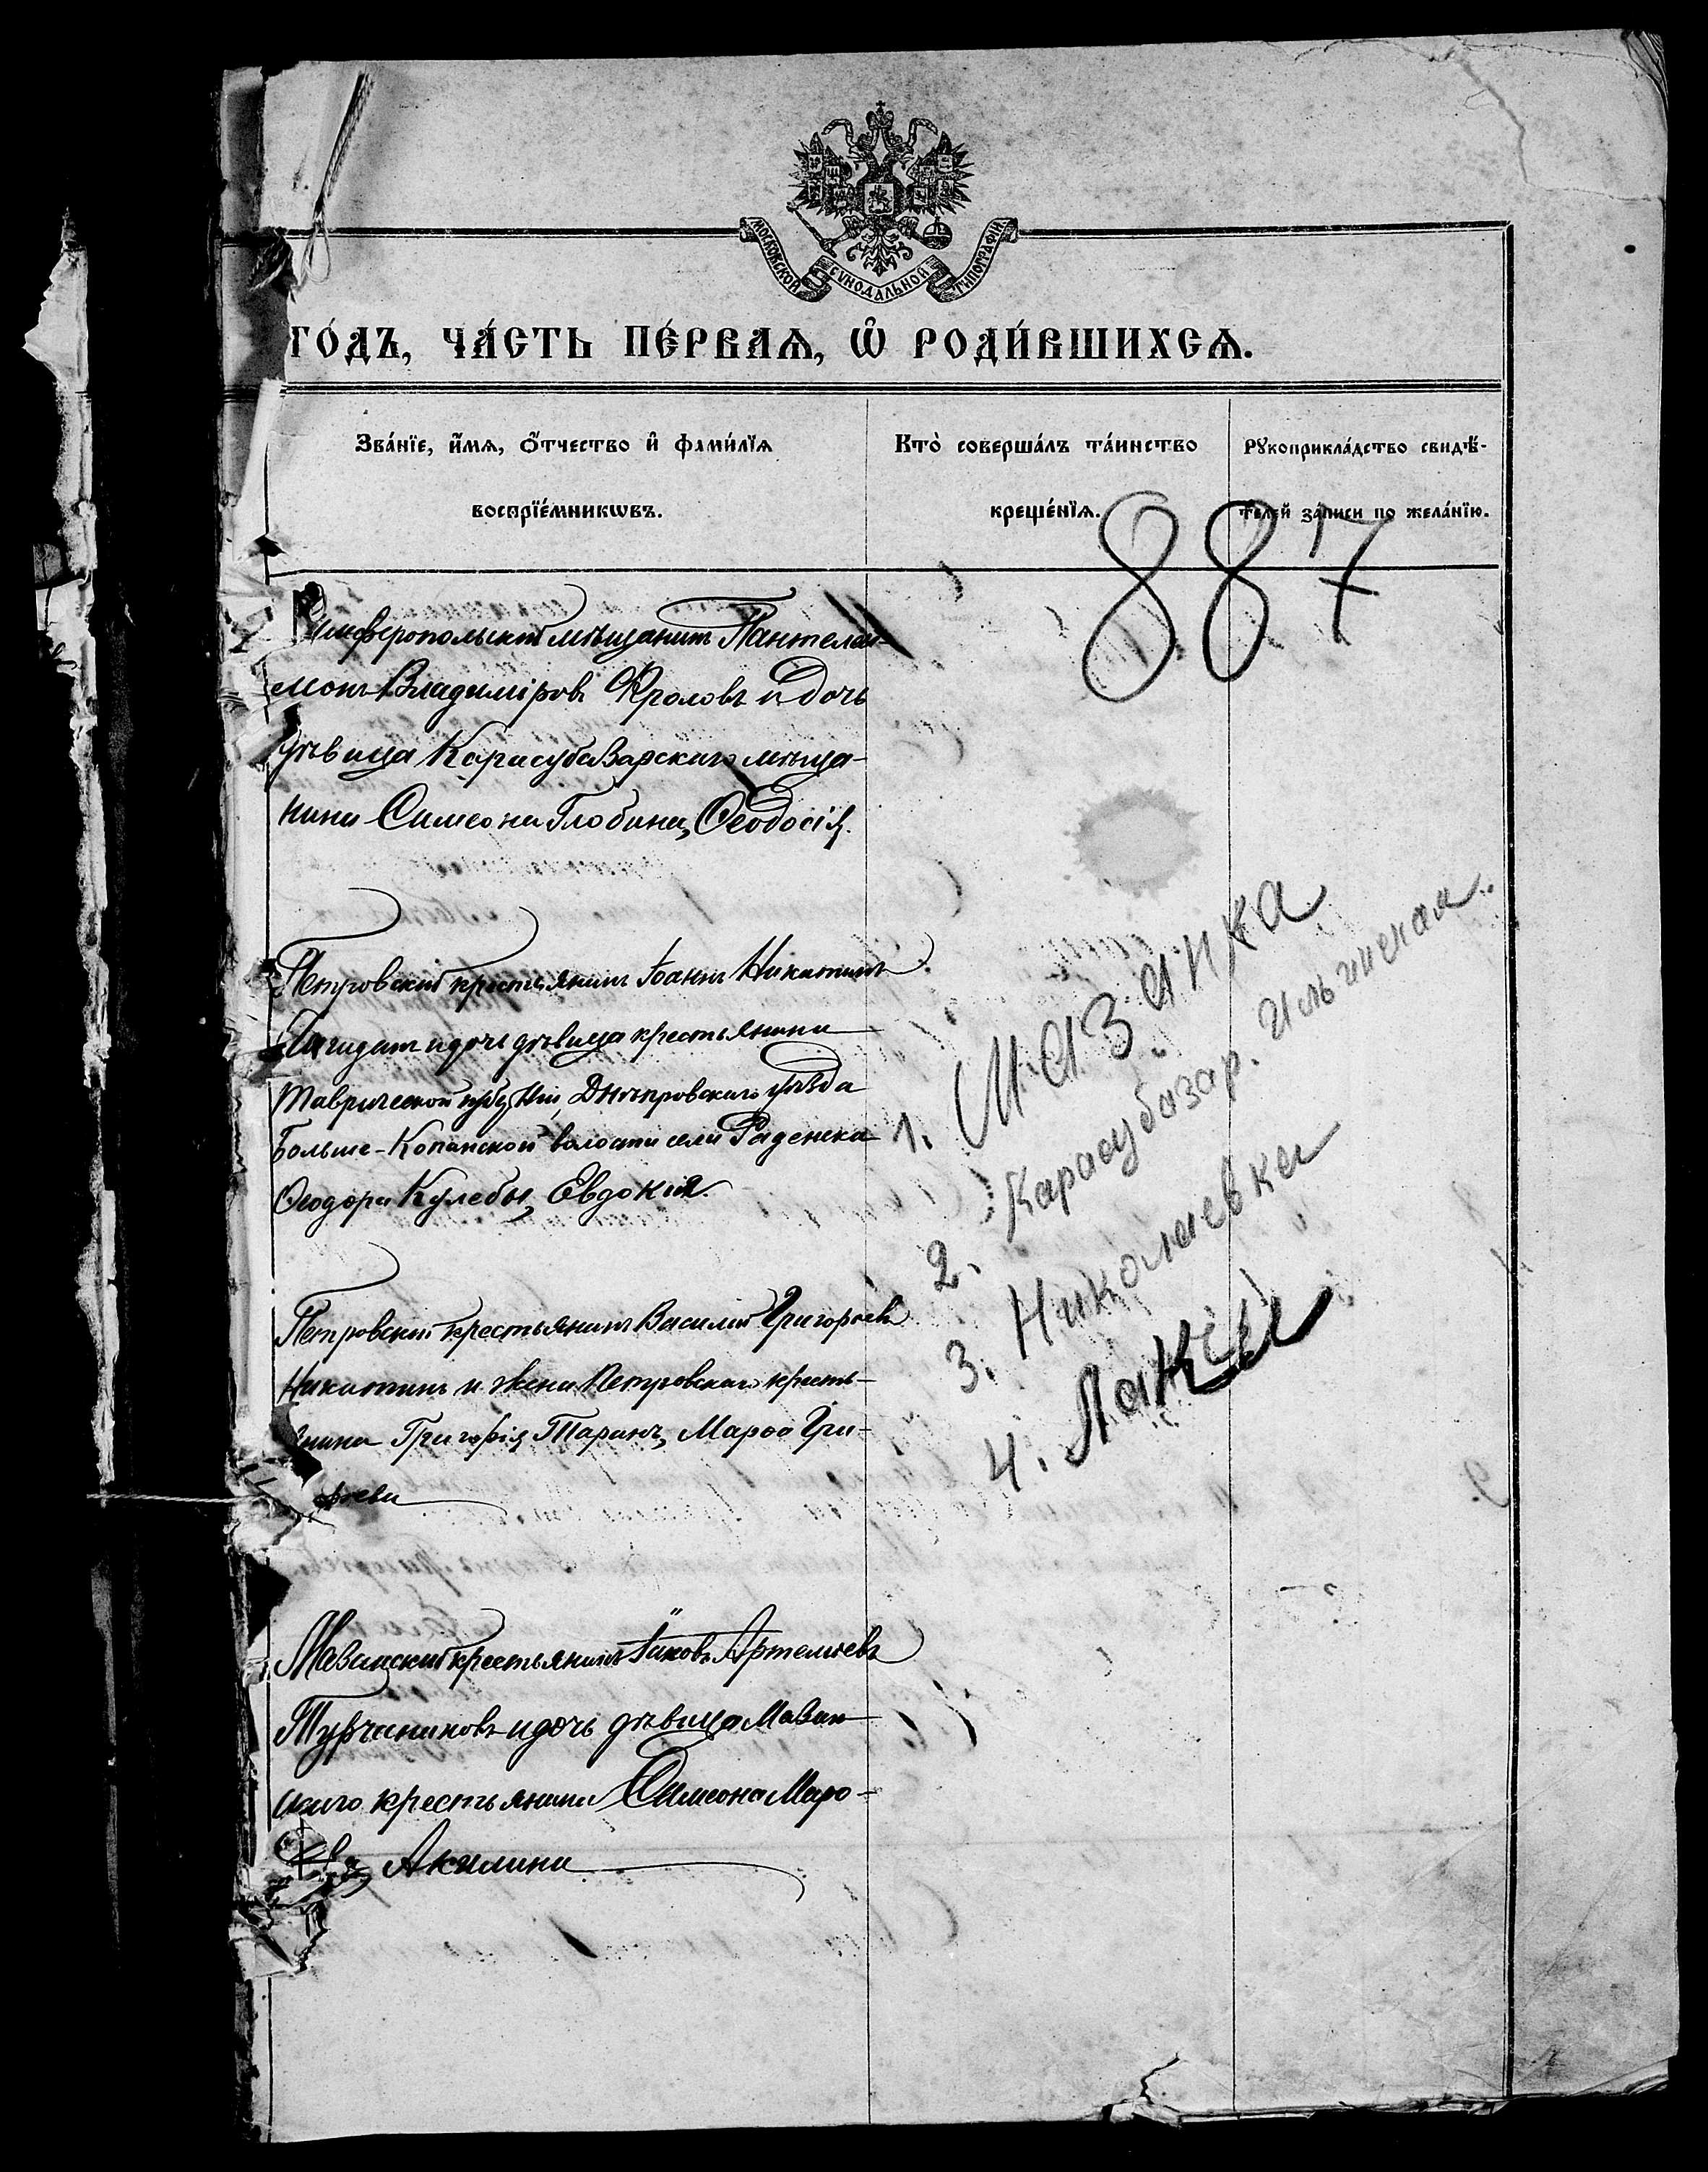 МОСКОВСКОЙ СѴНОДАЛЬНОЙ ТИПОГРАФІИ
ГО́ДЪ, ЧА́СТЬ ПЕ́РВАѦ, Ѡ҆ РОДИ́ВШИХСѦ.
Зва́нїе, и҆́мѧ, ѻ҆́тчество и҆ фами́лїѧ
воспрїе́мникѡвъ.
Кто̀ соверша́лъ та́инство
креще́нїѧ.
Рꙋкоприкла́дство свидѣ́-
телей за́писи по жела́нїю.
887
Симферопольскій мѣщанинъ Пантелеи-
монъ Владиміровъ Фроловъ и дочь
дѣвица Карасубазарскаго мѣща-
нина Симеона Глобина, Ѳеодосія.
Петровскій крестьянинъ Іоаннъ Никитинъ
и дочь дѣвица крестьянина
Таврической губерніи, Днѣпровскаго уѣзда
Больше-Копанской волости села Раденска
Ѳеодора Кулебы, Евдокія.
Петровскій крестьянинъ Василій Григорьевъ
Никитинъ и жена Петровскаго кресть-
янина Григорія Таранъ, Марѳа Гри-
горьева
Мазанскій крестьянинъ Іаковъ Артемьевъ
Турчениновъ и дочь дѣвица Мазан-
скаго крестьянина Симеона Маро-
Акилина
1. Мазанка
2. Карасубазар. Ильинская.
3. Николаевка
4. Лаки